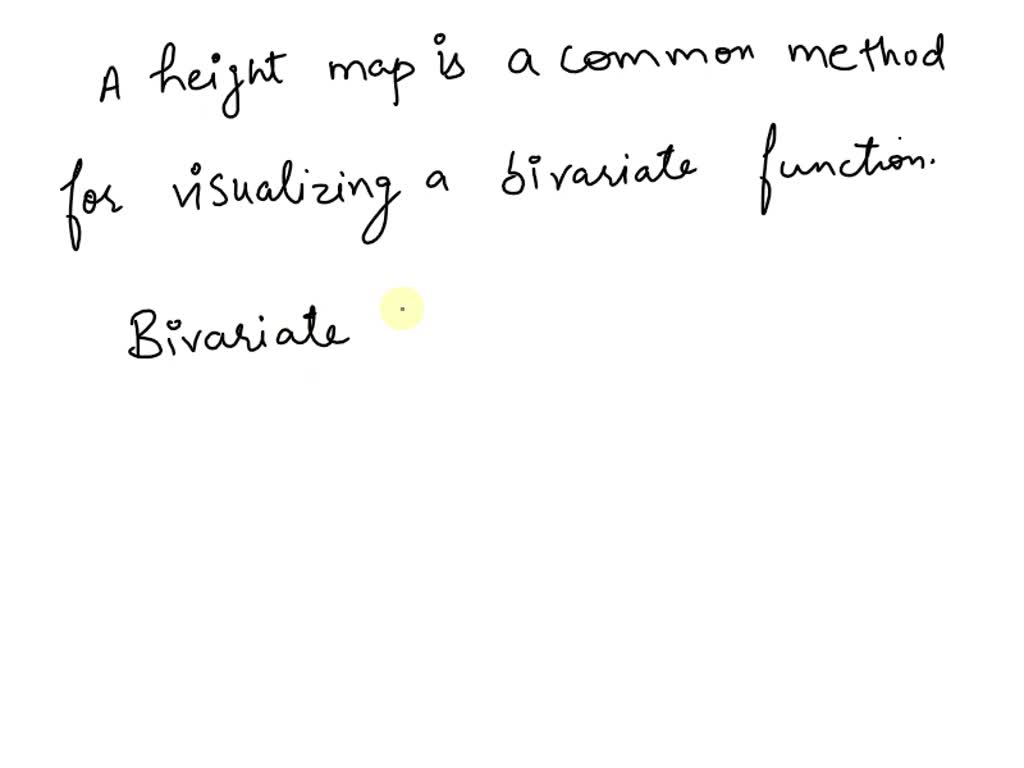 A height map is a common method
for visualizing a bivariate function.
Bivariate